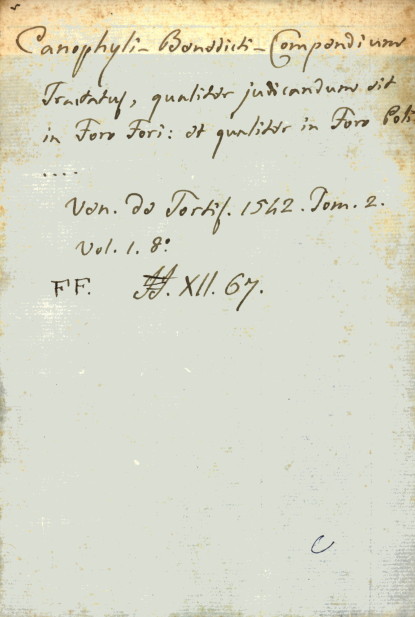 Canophyli - Benedicti - Compendium
Tractatus, qualiter judicandum sit
in Foro Fori: et qualiter in Foro Poli
....
Ven. de Tortis. 1542. Tom. 2.
Vol. 1. 8°
FF. XII. 67.
C